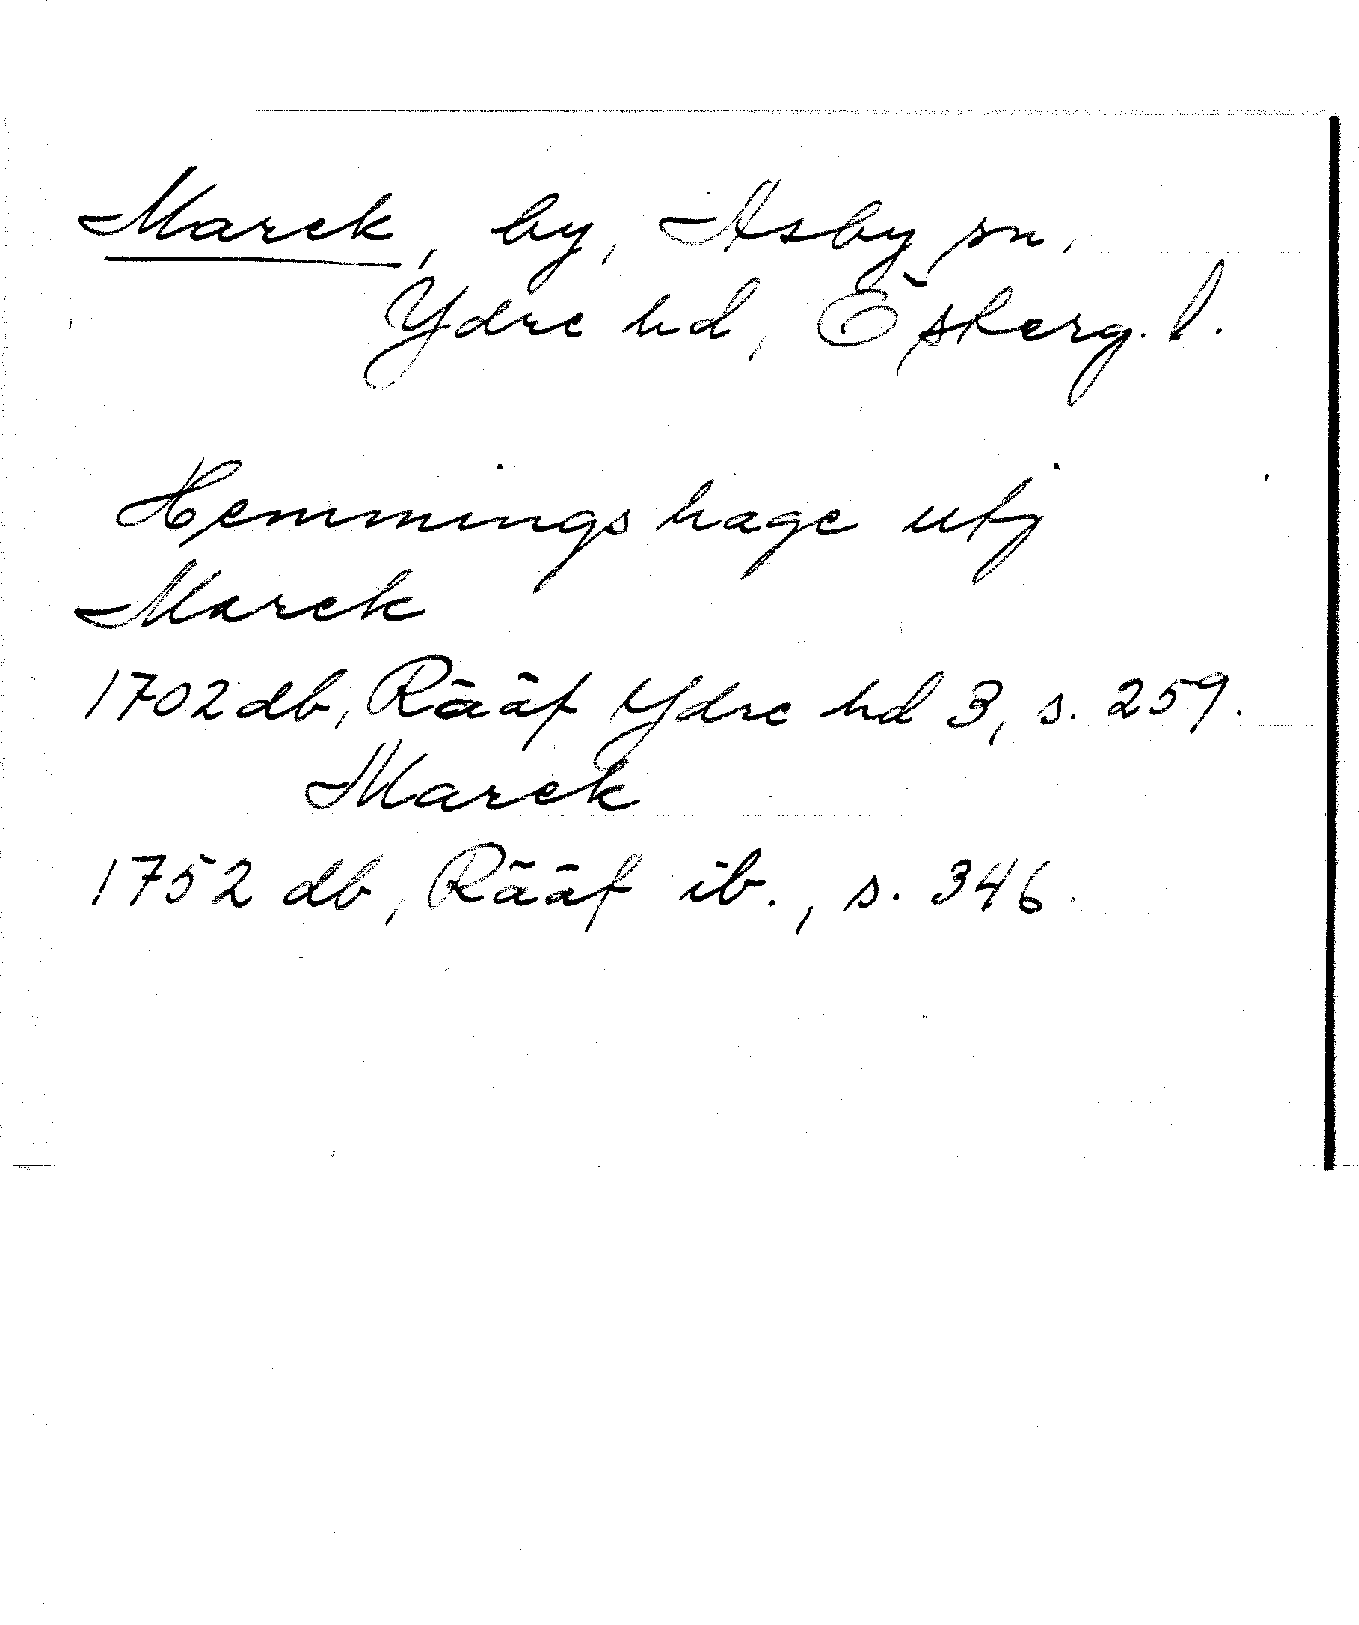 Marek, by, Asby sn,
Ydre hd, Östergl.
Hemmingshage utj
Marek
1702 db, Rääf Ydre hd 3, s. 259.
Marek
1752 db, Rääf ib., s. 346.